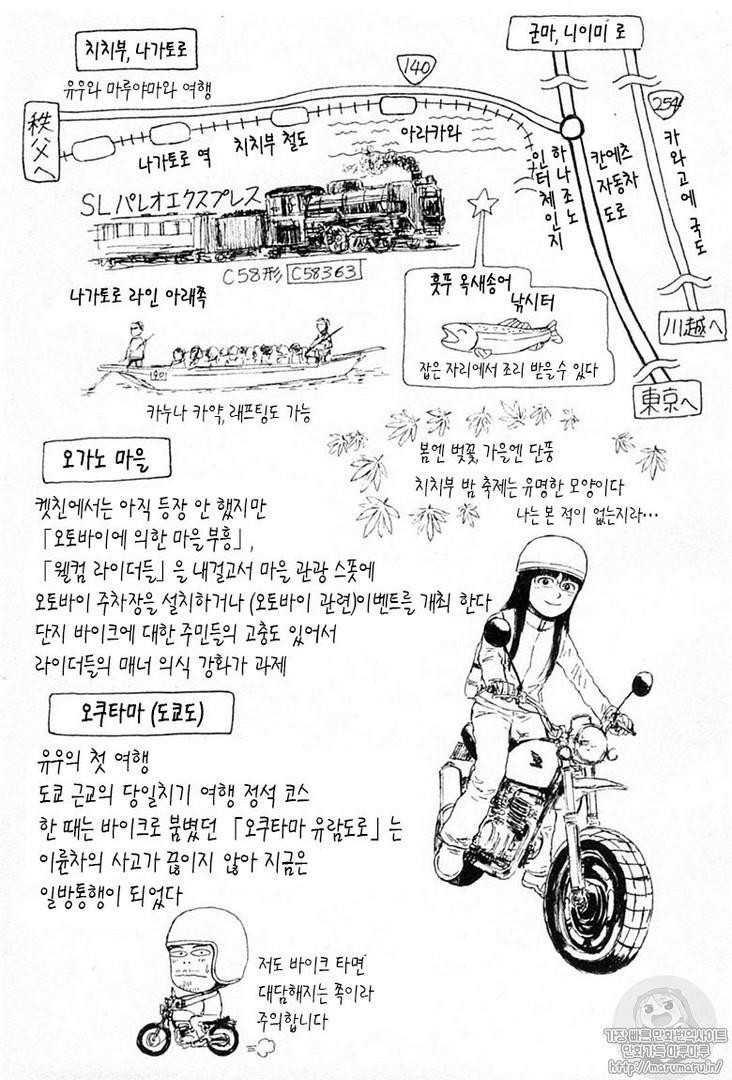 치치부, 나가토로
유우와 마루야마와 여행
군마, 니이미 로
140
254
秩父へ
나가토로 역
치치부 철도
아라카와
하나조노
인터체인지
칸에츠
자동차
도로
카와고에 국도
川越へ
東京へ
SLパレオエクスプレス
C58形 C58363
나가토로 라인 아래쪽
카누나 카약, 래프팅도 가능
훗푸 옥새송어
낚시터
잡은 자리에서 조리 받을수 있다
봄엔 벚꽃, 가을엔 단풍
치치부 밤 축제는 유명한 모양이다
나는 본 적이 없는지라…
오가노 마을
켓친에서는 아직 등장 안 했지만
「오토바이에 의한 마을 부흥」,
「웰컴 라이더들」을 내걸고서 마을 관광 스폿에
오토바이 주차장을 설치하거나 (오토바이 관련)이벤트를 개최 한다
단지 바이크에 대한 주민들의 고충도 있어서
라이더들의 매너 의식 강화가 과제
오쿠타마 (도쿄도)
유우의 첫 여행
도쿄 근교의 당일치기 여행 정석 코스
한 때는 바이크로 붐볐던 「오쿠타마 유람도로」는
이륜차의 사고가 끊이지 않아 지금은
일방통행이 되었다
저도 바이크 타면
대담해지는 쪽이라
주의합니다
가장 빠른 만화번역사이트
만화가득 마루마루
http://marumaru.in/